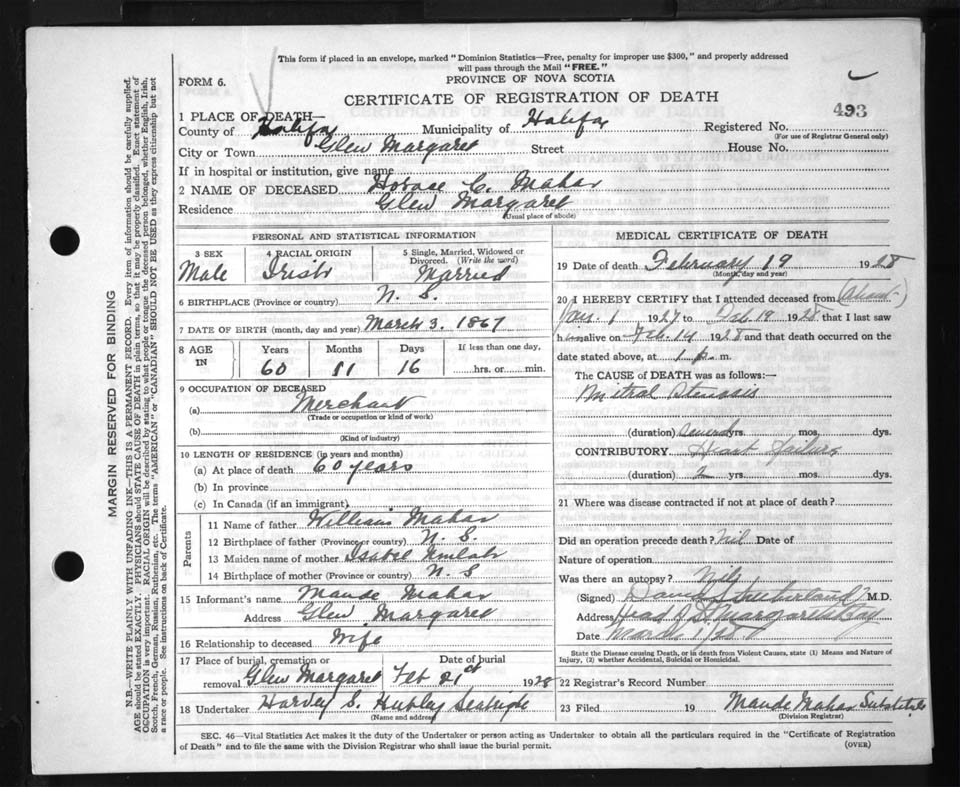 This form if placed in an envelope, marked "Dominion Statistics—Free, penalty for improper use $300," and properly addressed
will pass through the Mail "FREE."
FORM 6.
PROVINCE OF NOVA SCOTIA
CERTIFICATE OF REGISTRATION OF DEATH
493
1 PLACE OF DEATH—
County of Halifax Municipality of Halifax Registered No.
(For use of Registrar General only)
City or Town Glen Margaret Street House No.
If in hospital or institution, give name
2 NAME OF DECEASED Horace C. Mahar
Residence Glen Margaret
(Usual place of abode)
PERSONAL AND STATISTICAL INFORMATION
3 SEX 4 RACIAL ORIGIN 5 Single, Married, Widowed or
Divorced. (Write the word)
Male Irish Married
6 BIRTHPLACE (Province or country) N. S.
7 DATE OF BIRTH (month, day and year) March 3. 1867
8 AGE IN Years Months Days If less than one day,
60 11 16 hrs. or min.
9 OCCUPATION OF DECEASED
(a) Merchant
(Trade or occupation or kind of work)
(b)
(Kind of industry)
10 LENGTH OF RESIDENCE (in years and months)
(a) At place of death 60 years
(b) In province
(c) In Canada (if an immigrant)
Parents
11 Name of father William Mahar
12 Birthplace of father (Province or country) N. S.
13 Maiden name of mother Isabel
14 Birthplace of mother (Province or country) N. S
15 Informant's name Maude Mahar
Address Glen Margaret
16 Relationship to deceased Wife
17 Place of burial, cremation or Date of burial
removal Glen Margaret Feb 21st 1928
18 Undertaker Harvey S. Hubley Seabright
(Name and address)
MEDICAL CERTIFICATE OF DEATH
19 Date of death February 19 1928
(Month, day and year)
20 I HEREBY CERTIFY that I attended deceased from (about)
Jan. 1 1927 to Feb 19 1928 that I last saw
him alive on Feb. 14 1928 and that death occurred on the
date stated above, at 1 p. m.
The CAUSE of DEATH was as follows:—
Mitral Stenosis
(duration) several yrs. mos. dys.
CONTRIBUTORY Heart Failure
(duration) 2 yrs. mos. dys.
21 Where was disease contracted if not at place of death?
Did an operation precede death? Nil Date of
Nature of operation
Was there an autopsy? Nil
(Signed) M.D.
Address Head of St. Margarets Bay
Date March 1/28
State the Disease causing Death, or in death from Violent Causes, state (1) Means and Nature of
Injury, (2) whether Accidental, Suicidal or Homicidal.
22 Registrar's Record Number
23 Filed 19 Maude Mahar Substitute
(Division Registrar)
SEC. 46—Vital Statistics Act makes it the duty of the Undertaker or person acting as Undertaker to obtain all the particulars required in the "Certificate of Registration
of Death" and to file the same with the Division Registrar who shall issue the burial permit. (OVER)
MARGIN RESERVED FOR BINDING
N.B.—WRITE PLAINLY WITH UNFADING INK—THIS IS A PERMANENT RECORD. Every item of information should be carefully supplied.
AGE should be stated EXACTLY. PHYSICIANS should STATE CAUSE OF DEATH in plain terms, so that it may be properly classified. Exact statement of
OCCUPATION is very important. RACIAL ORIGIN will be described by stating to what people or tongue the deceased person belonged, whether English, Irish,
Scotch, French, German, Russian, Ruthenian, etc. The terms "AMERICAN" or "CANADIAN" SHOULD NOT BE USED as they express citizenship but not
a race or people. See instructions on back of Certificate.